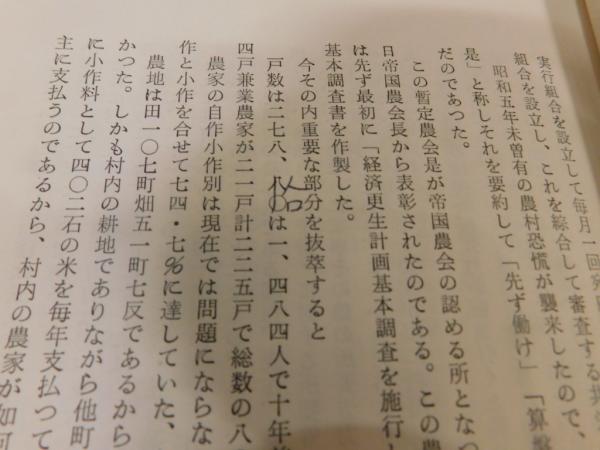 実行組合を設立して毎月一回
組合を設立し、これを綜合して審査する共
昭和五年末曽有の農村恐慌が襲来したので、
是」と称しそれを要約して「先ず働け」「算盤
だのであつた。
この暫定農会是が帝国農会の認める所となつ
日帝国農会長から表彰されたのである。この農
は先ず最初に「経済更生計画基本調査を施行し
基本調査書を作製した。
今その内重要な部分を抜萃すると
戸数は二七八、人口は一、四八四人で十年
四戸兼業農家が二一戸計二二五戸で総数の八
農家の自作小作別は現在では問題にならな
作と小作を合せて七四・七%に達していた、
農地は田一〇七町畑五一町七反であるから
かつた。しかも村内の耕地でありながら他町
に小作料として四〇二石の米を毎年支払つて
主に支払うのであるから、村内の農家が如何